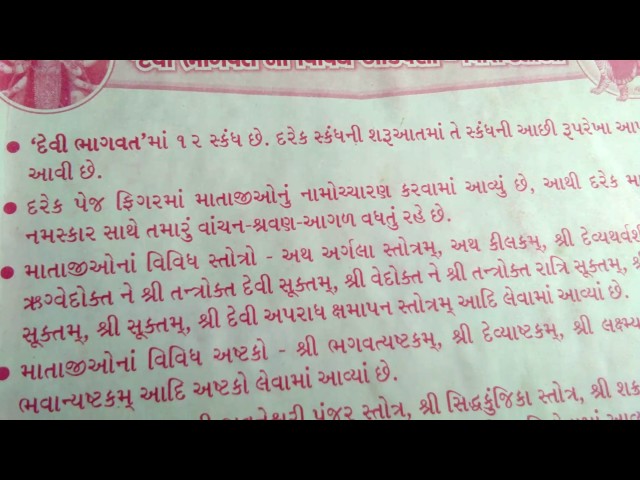 'દેવી ભાગવત'માં ૧૨ સ્કંધ છે. દરેક સ્કંધની શરૂઆતમાં તે સ્કંધની આછી રૂપરેખા આપ
આવી છે.
દરેક પેજ ફિગરમાં માતાજીઓનું નામોચ્ચારણ કરવામાં આવ્યું છે, આથી દરેક મા
નમસ્કાર સાથે તમારું વાંચન-શ્રવણ-આગળ વધતું રહે છે.
માતાજીઓનાં વિવિધ સ્તોત્રો - અથ અર્ગલા સ્તોત્રમ્, અથ કીલકમ્, શ્રી દેવ્યથર્વશી
ઋગ્વેદોક્ત ને શ્રી તન્ત્રોક્ત દેવી સૂક્તમ્, શ્રી વેદોક્ત ને શ્રી તન્ત્રોક્ત રાત્રિ સૂક્તમ્, શ્રી
સૂક્તમ્, શ્રી સૂક્તમ્, શ્રી દેવી અપરાધ ક્ષમાપન સ્તોત્રમ્ આદિ લેવામાં આવ્યાં છે.
માતાજીઓનાં વિવિધ અષ્ટકો - શ્રી ભગવત્યષ્ટકમ્, શ્રી દેવ્યાષ્ટકમ્, શ્રી લક્ષ્મ્ય
ભવાન્યષ્ટકમ્ આદિ અષ્ટકો લેવામાં આવ્યાં છે.
પંજર સ્તોત્ર, શ્રી સિદ્ધકુંજિકા સ્તોત્ર, શ્રી શક્ર